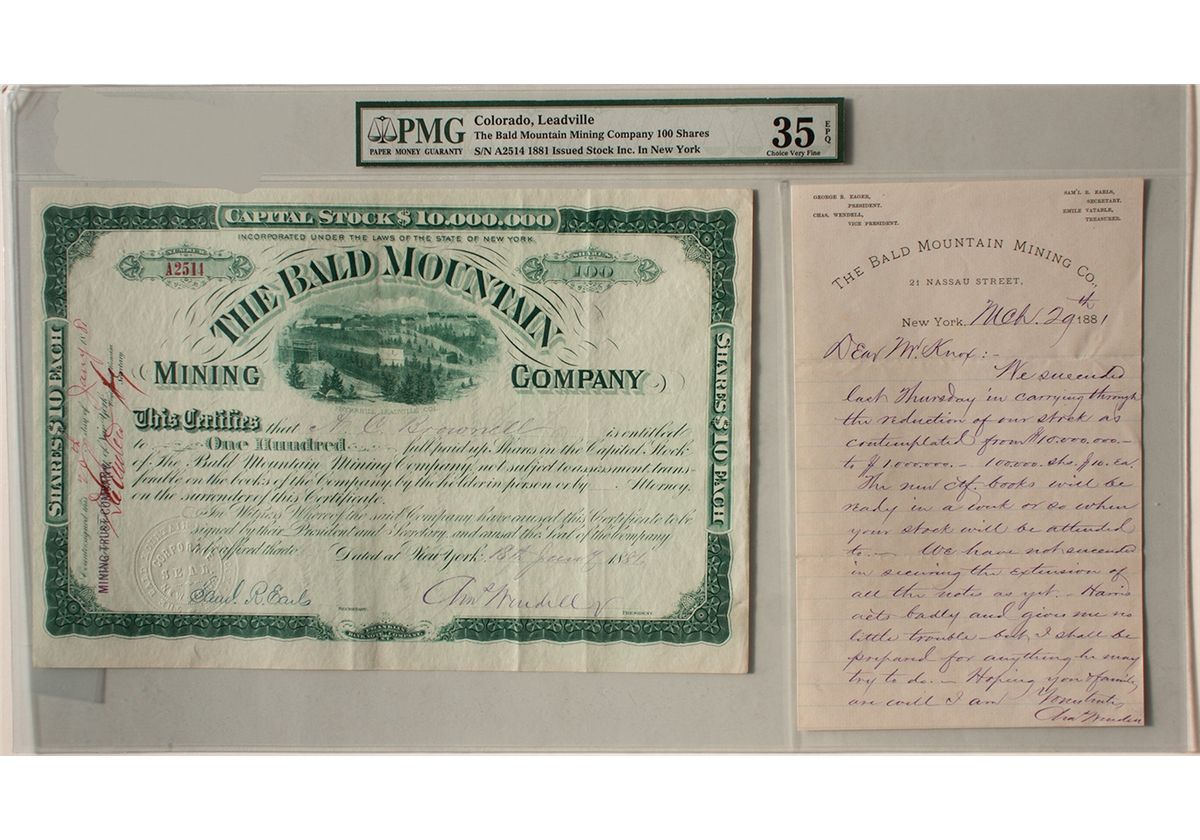 PMG
PAPER MONEY GUARANTY
Colorado, Leadville
The Bald Mountain Mining Company 100 Shares
S/N A2514 1881 Issued Stock Inc. In New York
35
EPQ
Choice Very Fine
CAPITAL STOCK $10.000.000
INCORPORATED UNDER THE LAWS OF THE STATE OF NEW YORK.
NUMBER
A2514
SHARES
100
THE BALD MOUNTAIN
MINING COMPANY
LEADVILLE COL.
This Certifies that C. Brownell is entitled
to One Hundred full paid up Shares in the Capital Stock
of The Bald Mountain Mining Company, not subject to assessment, trans
ferable on the books of the Company by the holder in person or by Attorney,
on the surrender of this Certificate.
In Witness Whereof the said Company have caused this Certificate to be
signed by their President and Secretary, and caused the Seal of the Company
to be affixed thereto.
Dated at New York 13th Jany 1881
Saml. R. Earls
SECRETARY.
Chas Wendell
PRESIDENT.
SHARES $10 EACH
SHARES $10 EACH
Countersigned this 20th day of Jany 188
MINING TRUST COMPANY
CORPORATE
SEAL
GEORGE B. EAGER,
PRESIDENT.
CHAS. WENDELL,
VICE PRESIDENT.
SAM'L R. EARLS,
SECRETARY.
EMILE VATABLE,
TREASURER.
THE BALD MOUNTAIN MINING CO.,
21 NASSAU STREET,
New York, Mch. 29th 1881
Dear Mr. Knox:-
We succeeded
last Thursday in carrying through
the reduction of our stock as
contemplated from $10.000.000.-
to $1.000.000.- 100.000 shs. $10. Ea.
The new ctf. books will be
ready in a week or so when
your stock will be attended
to.- We have not succeeded
in securing the extension of
all the notes as yet.- Harris
acts badly and gives me no
little trouble - but I shall be
prepared for anything he may
try to do.- Hoping you & family
are well I am Yours truly
Chas Wendell